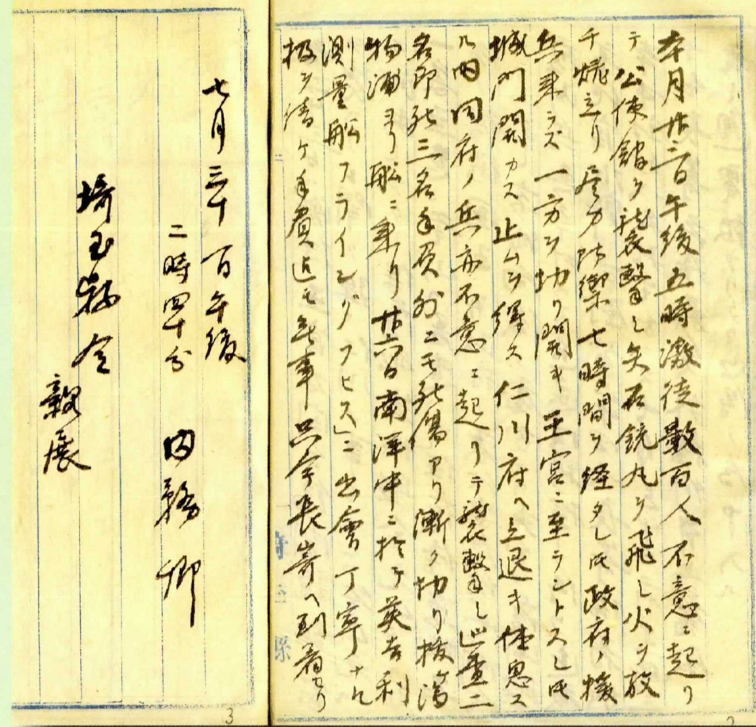 本月廿三日午後五時激徒数百人不意ニ起リ
テ公使館ヲ襲撃シ矢石銃丸ヲ飛シ火ヲ放
チ焼立リ尽力防禦七時間ヲ経タレ𪜈政府ノ援
兵来ラズ一方ヲ切リ開キ王宮ニ至ラントスレ𪜈
城門開カス止ムヲ得ス仁川府ヘ立退キ休息ス
ル内同府ノ兵亦不意ニ起リテ襲撃シ巡査二
名即死三名手負外ニモ死傷アリ漸ク切リ抜済
物浦ヨリ船ニ乗リ廿六日南洋中ニ於テ英吉利
測量船フライングフヒス」ニ出會丁寧ナル
扱ヲ請ケ手負迄モ無事只今長嵜ヘ到着セリ
七月三十一日午後
二時四十分 内務卿
埼玉縣令
親展
3